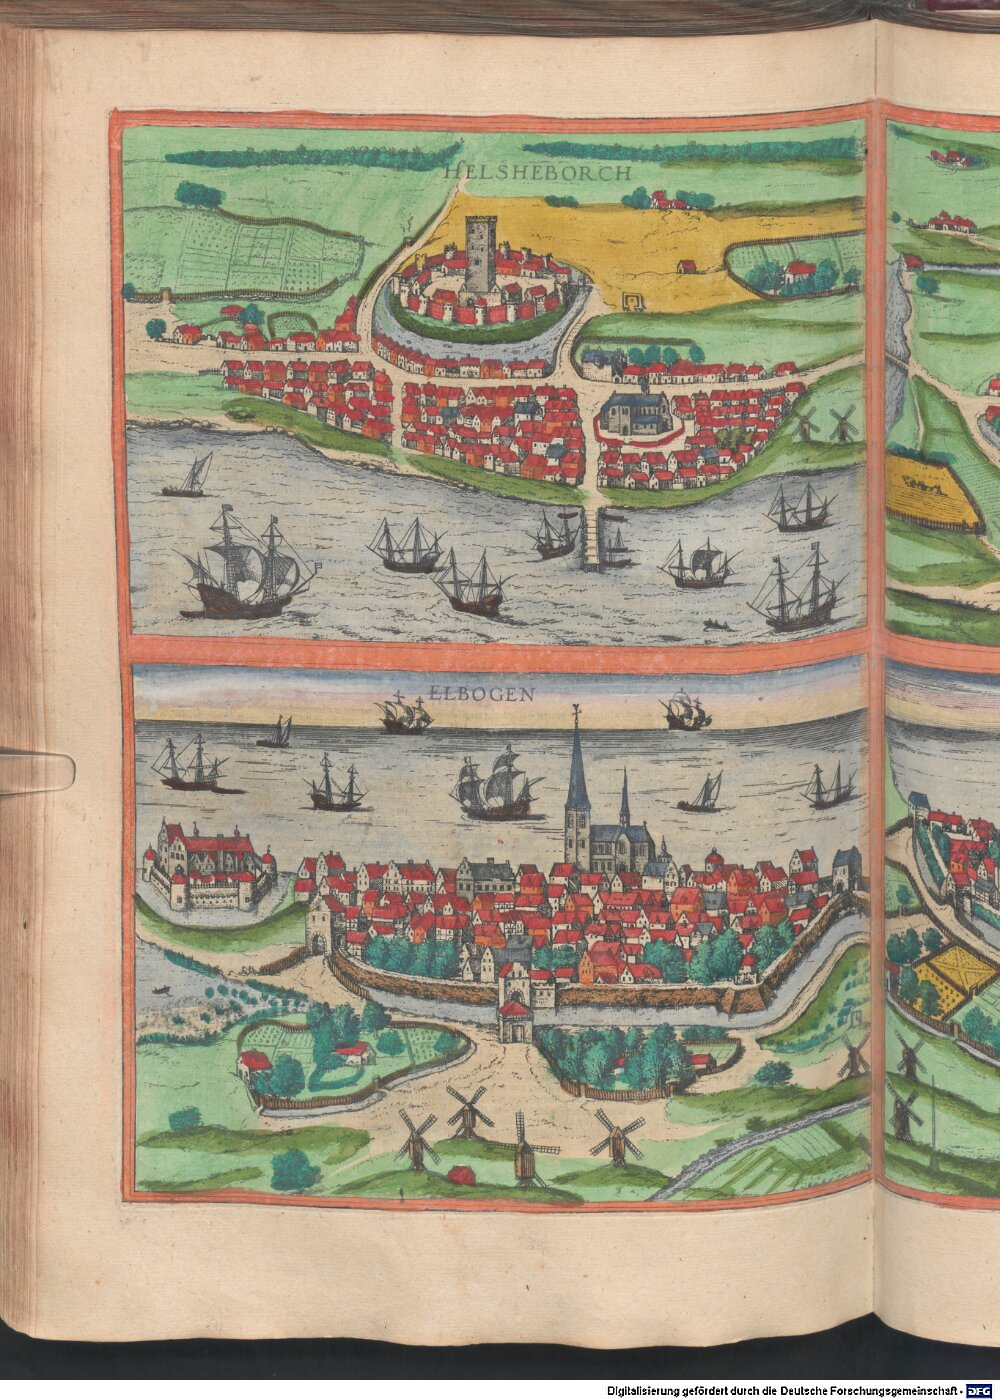 HELSHEBORCH
ELBOGEN
Digitalisierung gefördert durch die Deutsche Forschungsgemeinschaft - DFG